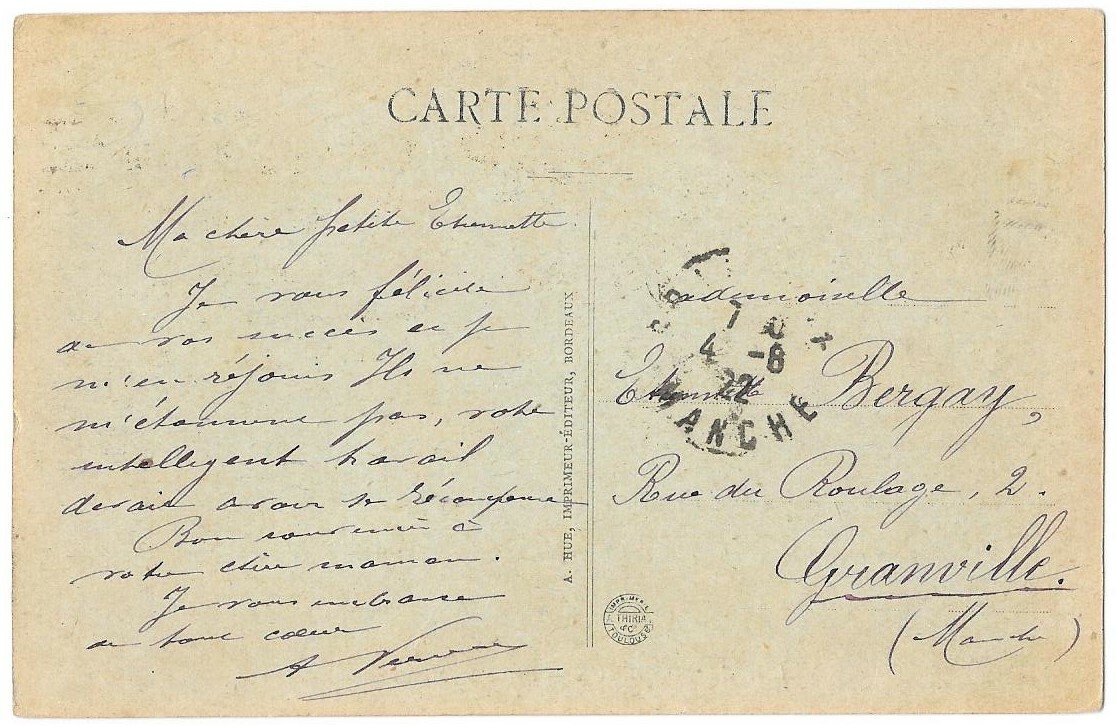 CARTE POSTALE
Ma chère petite Etiennette
Je vous félicite
de vos succès et je
m'en réjouis Ils ne
m'étonnent pas, votre
intelligent travail
devait avoir sa récompense
Bon souvenir à
votre chère maman.
Je vous embrasse
de tout coeur
A
A. HUE, IMPRIMEUR-ÉDITEUR, BORDEAUX
Mademoiselle
Etiennette Bergay,
Rue du Roulage, 2.
Granville.
(Manche)
7
4 -8
22
MANCHE
IMPRIMERIE
THIRIA
& Cº
TOULOUSE